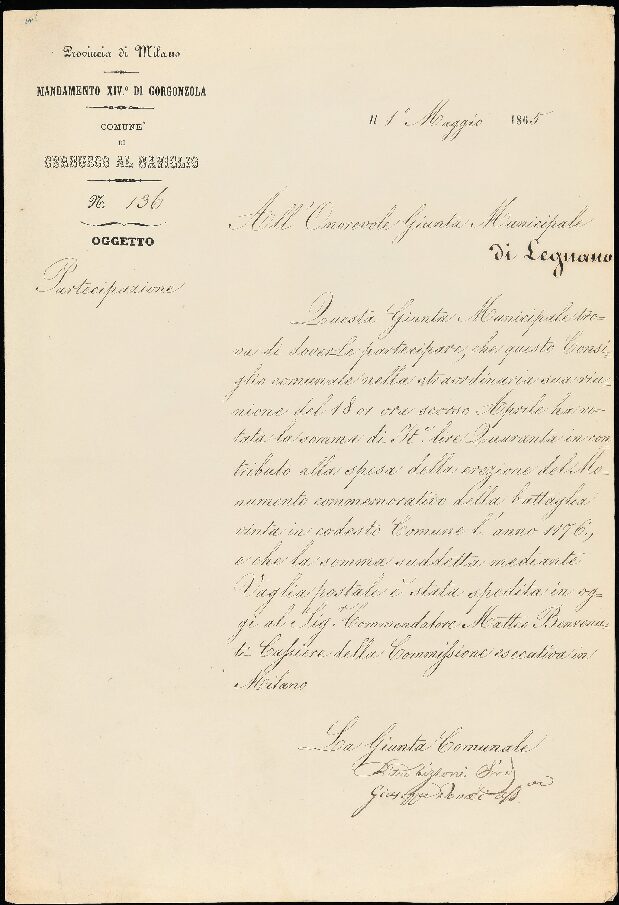 Provincia di Milano
MANDAMENTO XIV.º DI GORGONZOLA
COMUNE
DI
CERNUSCO AL NAVIGLIO
N. 136
OGGETTO
Partecipazione
li 1º Maggio 1865
All' Onorevole Giunta Municipale
di Legnano
Questa Giunta Municipale tro-
va di doverLe partecipare, che questo Consi-
glio comunale nella straordinaria sua riu-
nione del 18 or ora scorso Aprile ha vo-
tata la somma di It.e lire Quaranta in con
tributo alla spesa della erezione del Mo-
numento commemorativo della battaglia
vinta in codesto Comune l' anno 1176,
e che la somma suddetta mediante
Vaglia postale è stata spedita in og-
gi al Sig.r Commendatore Matteo Benvenu-
ti Cassiere della Commissione esecutiva in
Milano
La Giunta Comunale